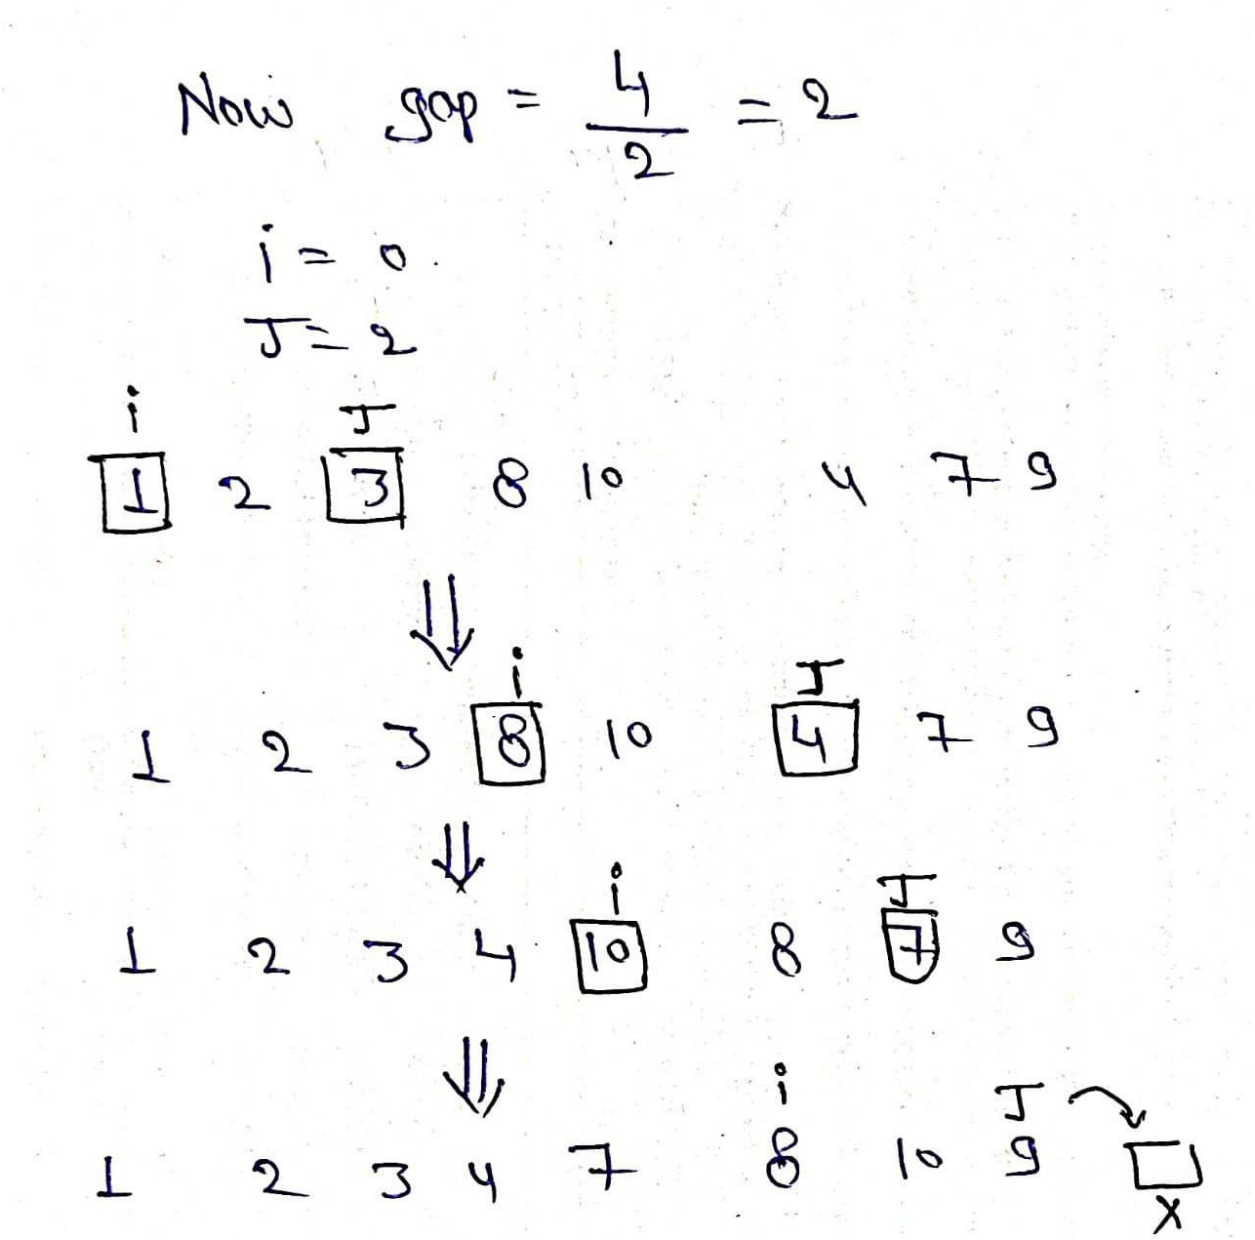 Now gap = 4/2 = 2
i = 0.
J = 2
i J
1 2 3 8 10 4 7 9
⇓
i J
1 2 3 8 10 4 7 9
⇓
i J
1 2 3 4 10 8 7 9
⇓
i J
1 2 3 4 7 8 10 9
X